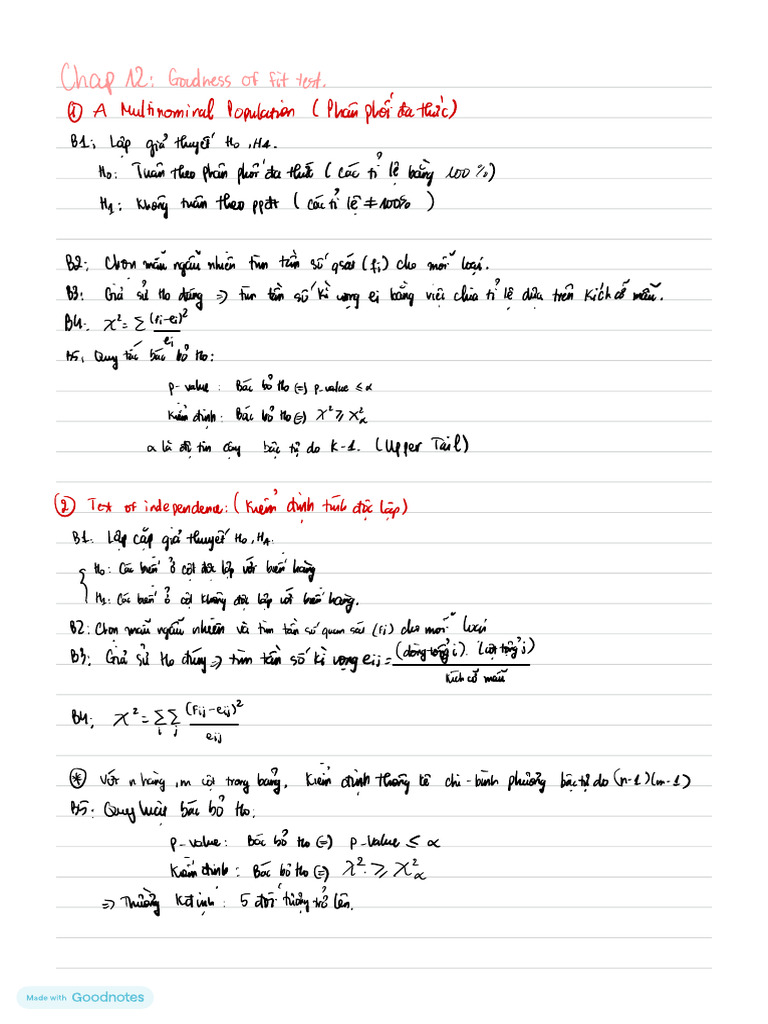 Chap 12: Goodness of fit test.
① A Multinominal Population (Phân phối đa thức)
B1: Lập giả thuyết H0, HA.
H0: Tuân theo phân phối đa thức (các tỉ lệ bằng 100%)
H1: Không tuân theo ppđt (các tỉ lệ ≠ 100%)
B2: Chọn mẫu ngẫu nhiên tìm tần số qsát (fi) cho mỗi loại.
B3: Giả sử H0 đúng => tìm tần số kì vọng ei bằng việc chia tỉ lệ dựa trên kích cỡ mẫu.
B4: χ² = Σ (fi-ei)² / ei
B5: Quy tắc bác bỏ H0:
p-value: Bác bỏ H0 (=) p-value ≤ α
Kiểm định: Bác bỏ H0 (=) χ² ≥ χ²α
α là độ tin cậy bậc tự do K-1. (Upper Tail)
② Test of independence: (Kiểm định tính độc lập)
B1: Lập cặp giả thuyết H0, HA:
H0: Các biến ở cột độc lập với biến hàng
H1: Các biến ở cột không độc lập với biến hàng.
B2: Chọn mẫu ngẫu nhiên và tìm tần số quan sát (fi) cho mỗi loại
B3: Giả sử H0 đúng => tìm tần số kì vọng eij = (dòng tổng i). (cột tổng j) / kích cỡ mẫu
B4: χ² = Σi Σj (fij-eij)² / eij
* Với n hàng, m cột trong bảng, kiểm định thống kê chi-bình phương bậc tự do (n-1)(m-1)
B5: Quy luật bác bỏ H0:
p-value: Bác bỏ H0 (=) p-value ≤ α
Kiểm định: Bác bỏ H0 (=) χ² ≥ χ²α
=> Thường : 5 đối tượng trở lên.
Made with Goodnotes